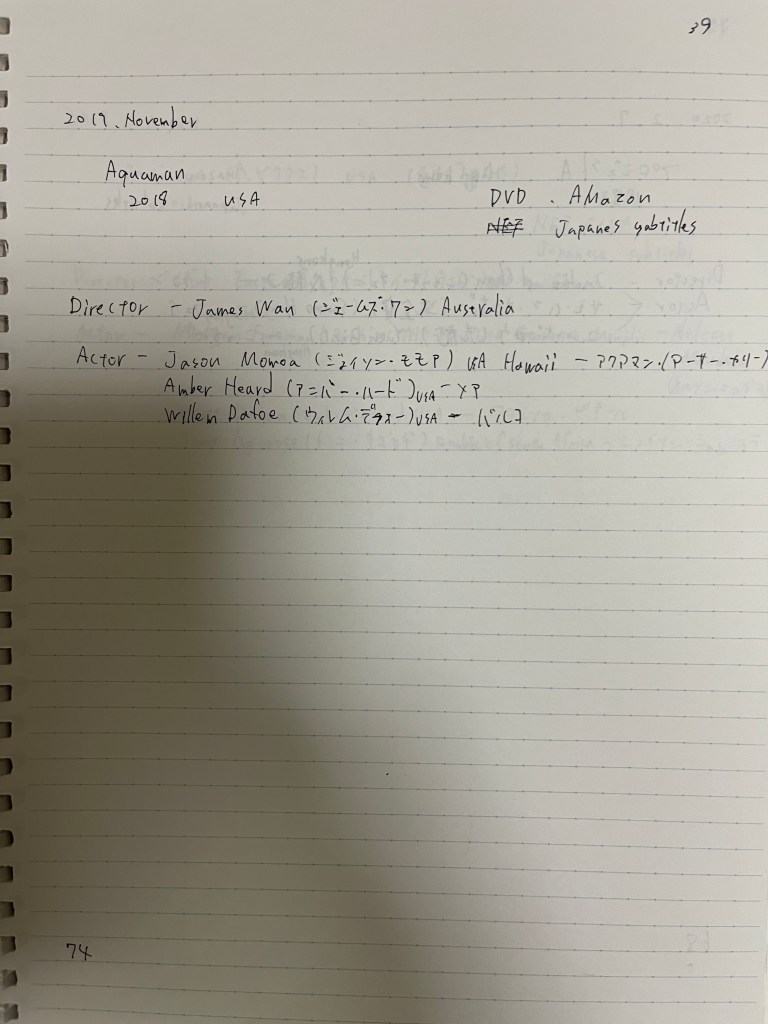 39
2019. November
Aquaman
2018 USA DVD. Amazon
Japanes sabtitles
Director - James Wan (ジェームズ・ワン) Australia
Actor - Jason Momoa (ジェイソン・モモア) USA Hawaii - アクアマン・(アーサー・カリー)
Amber Heard (アンバー・ハード) USA - メア
Willem Dafoe (ウィレム・デフォー) USA - バルコ
74